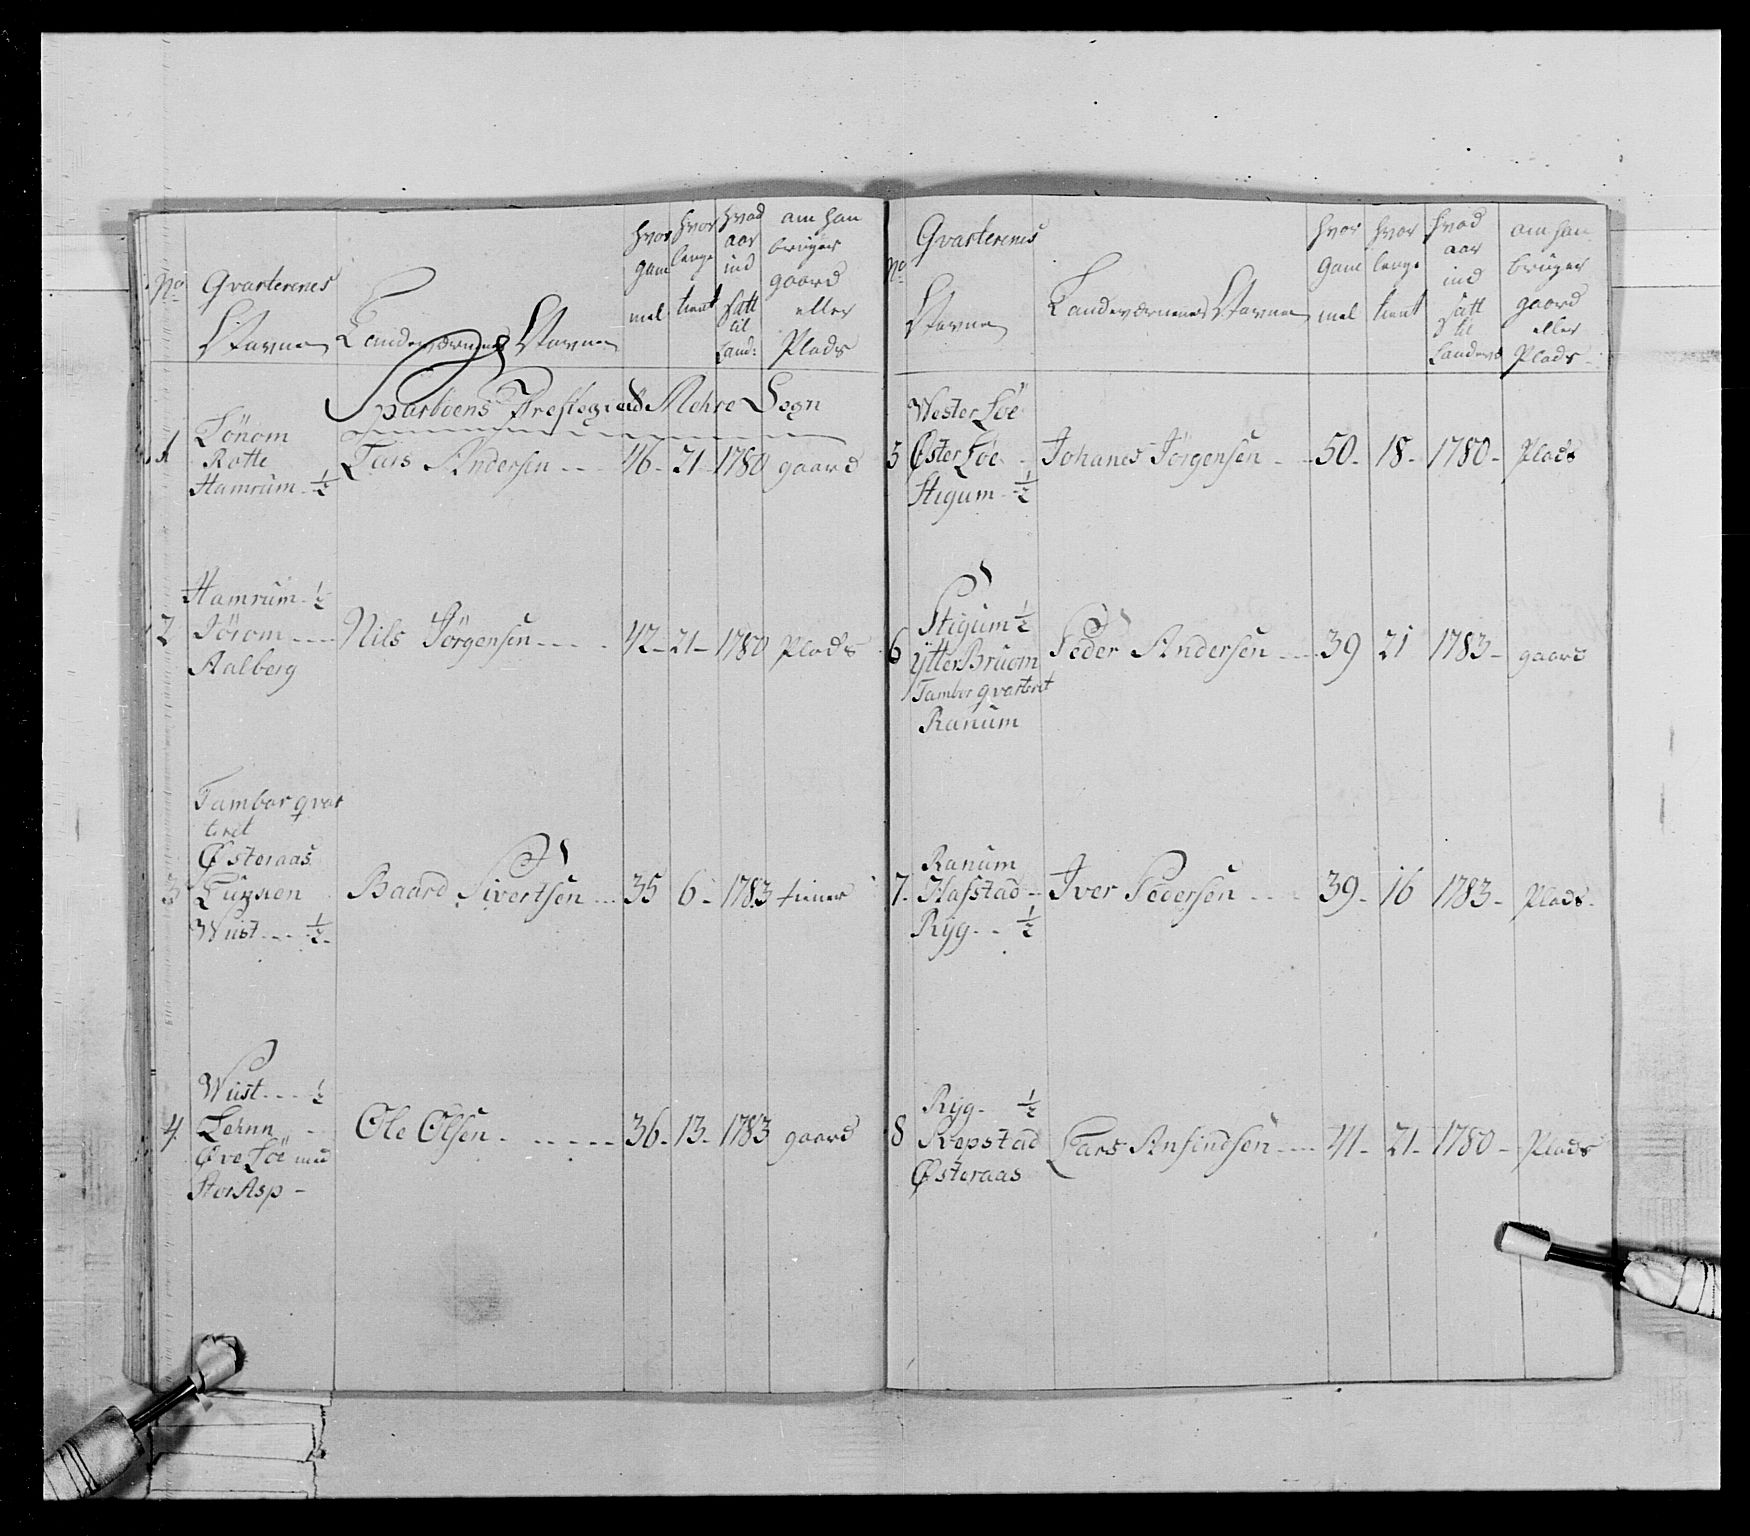 No
Qvarterenes
Navne
Landeværnenes Navne
hvor
gam
mel
hvor
lenge
tient
hvad
aar
ind
satt
til
Land:
om han
bruger
gaard
eller
Plads
Sparboens Prestegield Mehre Sogn
1
Lönom
Rotte
Hamrum - ½
Lars Andersen - - 46 - 21 - 1780 gaard
2
Hamrum - ½
Aalberg
Nils Jörgensen - - - - 42 - 21 - 1780 Plads
3
Tambor qvar
teret
Østeraas
Wüst - - - ½ -
Baard Sivertsen - - 35 6 - 1783 tiener
4.
Wüst - - - ½
Lehnn
Øve Löe med
Stor Asp -
Ole Olsen - - - - - - 36 - 13 - 1783 gaard
No
Qvarterenes
Navne
Landeværnenes Navne
hvor
gam
mel
hvor
lenge
tient
hvad
aar
ind
satt
til
Landev
om han
bruger
gaard
eller
Plads -
5
Wester Löe
Øster Löe -
Stigum - ½
Johanes Jörgensen - - 50 - 18 - 1780 - Plads
6
Stigum ½
Ÿtter Bruem
Tambor qvarteret
Ranum
Peder Andersen - - - 39 21 1783 - gaard
7 -
Ranum
Hafstad - -
Rÿg - - ½
Iver Pedersen - - - 39 - 16 1783 - Plads -
8
Rÿg - ½
Repstad
Østeraas
Lars Anfindsen - - - 41 - 21 - 1780 - Plads